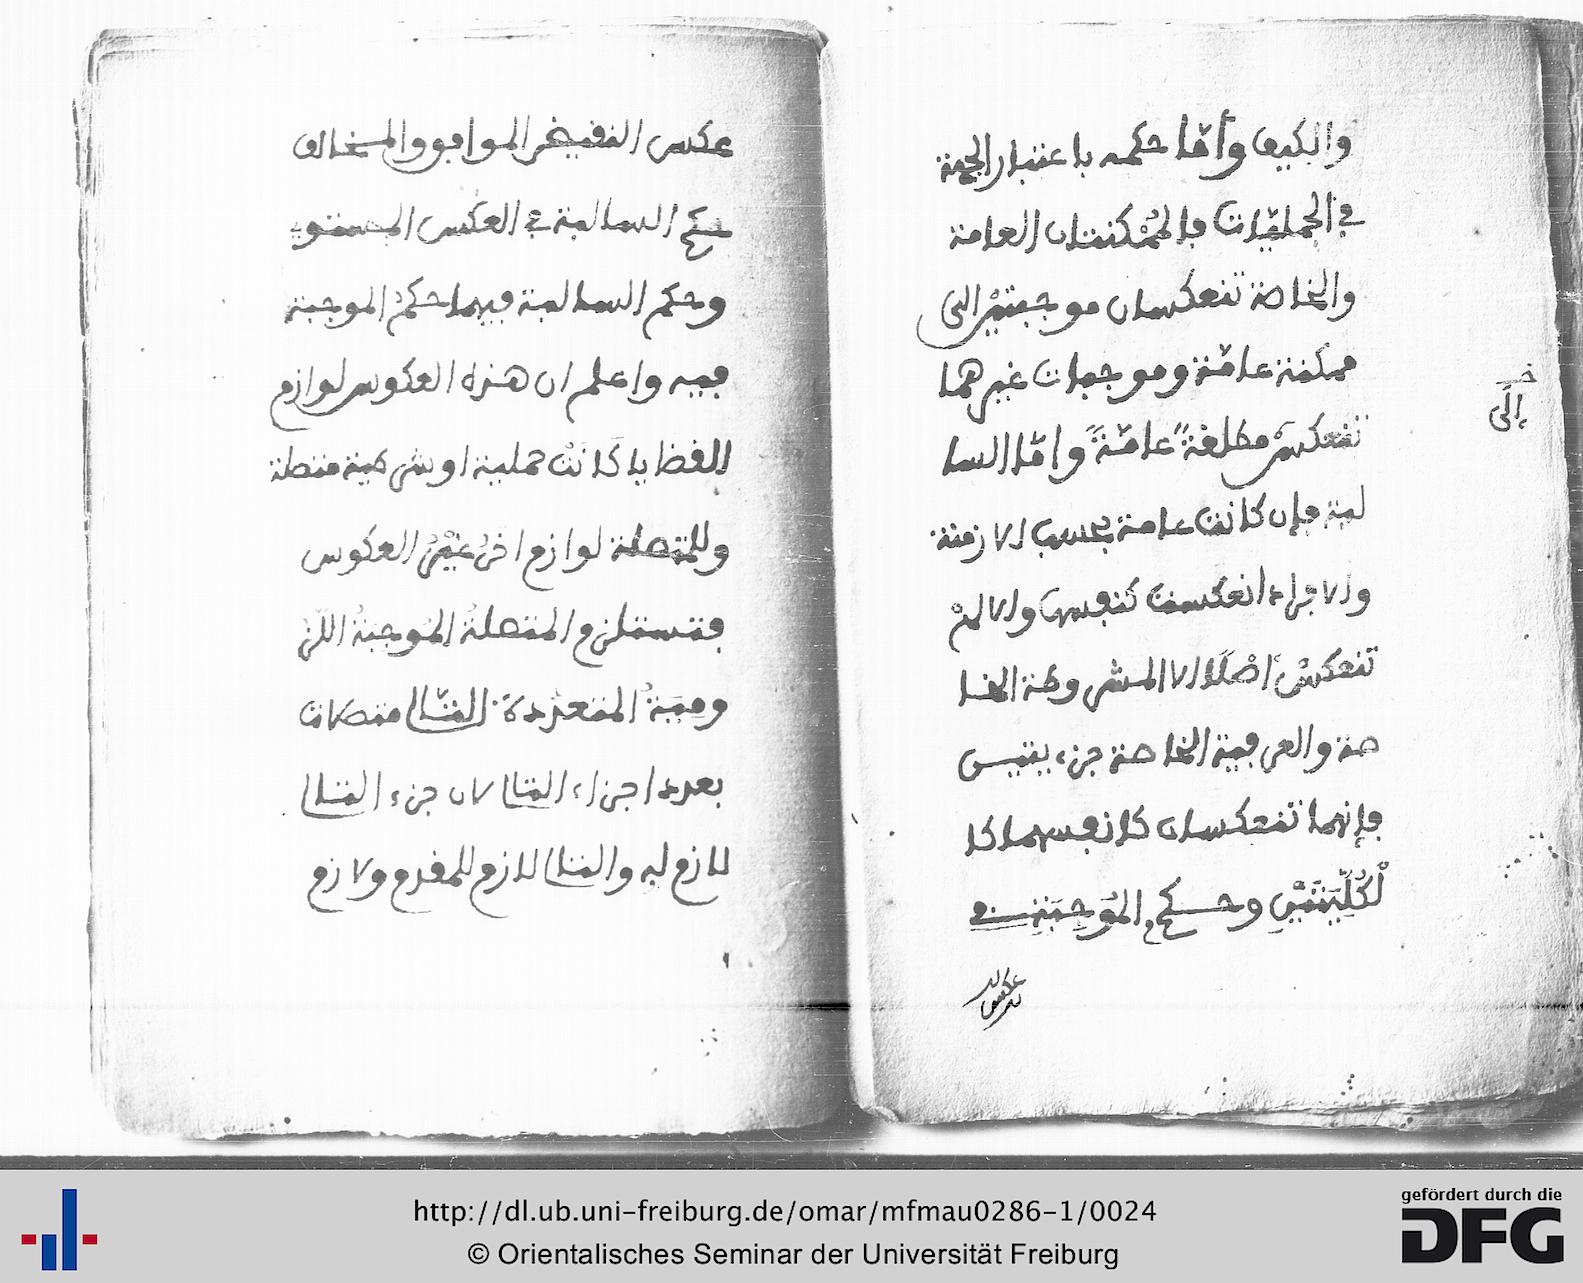 والكيف وأمّا حكمه باعتبار الجهة
في الحمليّات فالممْكنتان العامة
والخاصة تنعكسان موجبتيْن إلى
ممكنة عامّة وموجبات غيرهما
تنعكس مطلقةً عامّةً وامّا السا
لبة فإن كانت عامة بحسب الازمنة
والافراد انعكست كنفسها والا لمْ
تنعكسْ أصْلًا الا المشروطة الخا
صة والعرفية الخاصة جزءيتيـن
فإنهما تنعكسان كانفسهما كا
لْكُلِّيَتَيْنِ وحـكم الموجبة في
عكس
إلَى
عكس النقيض الموافق والمخالف
حكم السالبة في العكس المستوي
وحكم السالبة فيهما حكمُ الموجبة
فيه واعلم ان هذه العكوس لوازم
القضايا كانتْ حملية او شرطية متصلة
وللمتصلة لوازم اخرُ غيْرُ العكوس
فتستلزم المتصلةُ الموجبةُ اللز
وميَةُ المتعدّدةُ التّالى متصلات
بعدد اجزاء التالى لان جزء التالى
لازم له والتالى لازم للمقدم ولازم
http://dl.ub.uni-freiburg.de/omar/mfmau0286-1/0024
© Orientalisches Seminar der Universität Freiburg
gefördert durch die
DFG